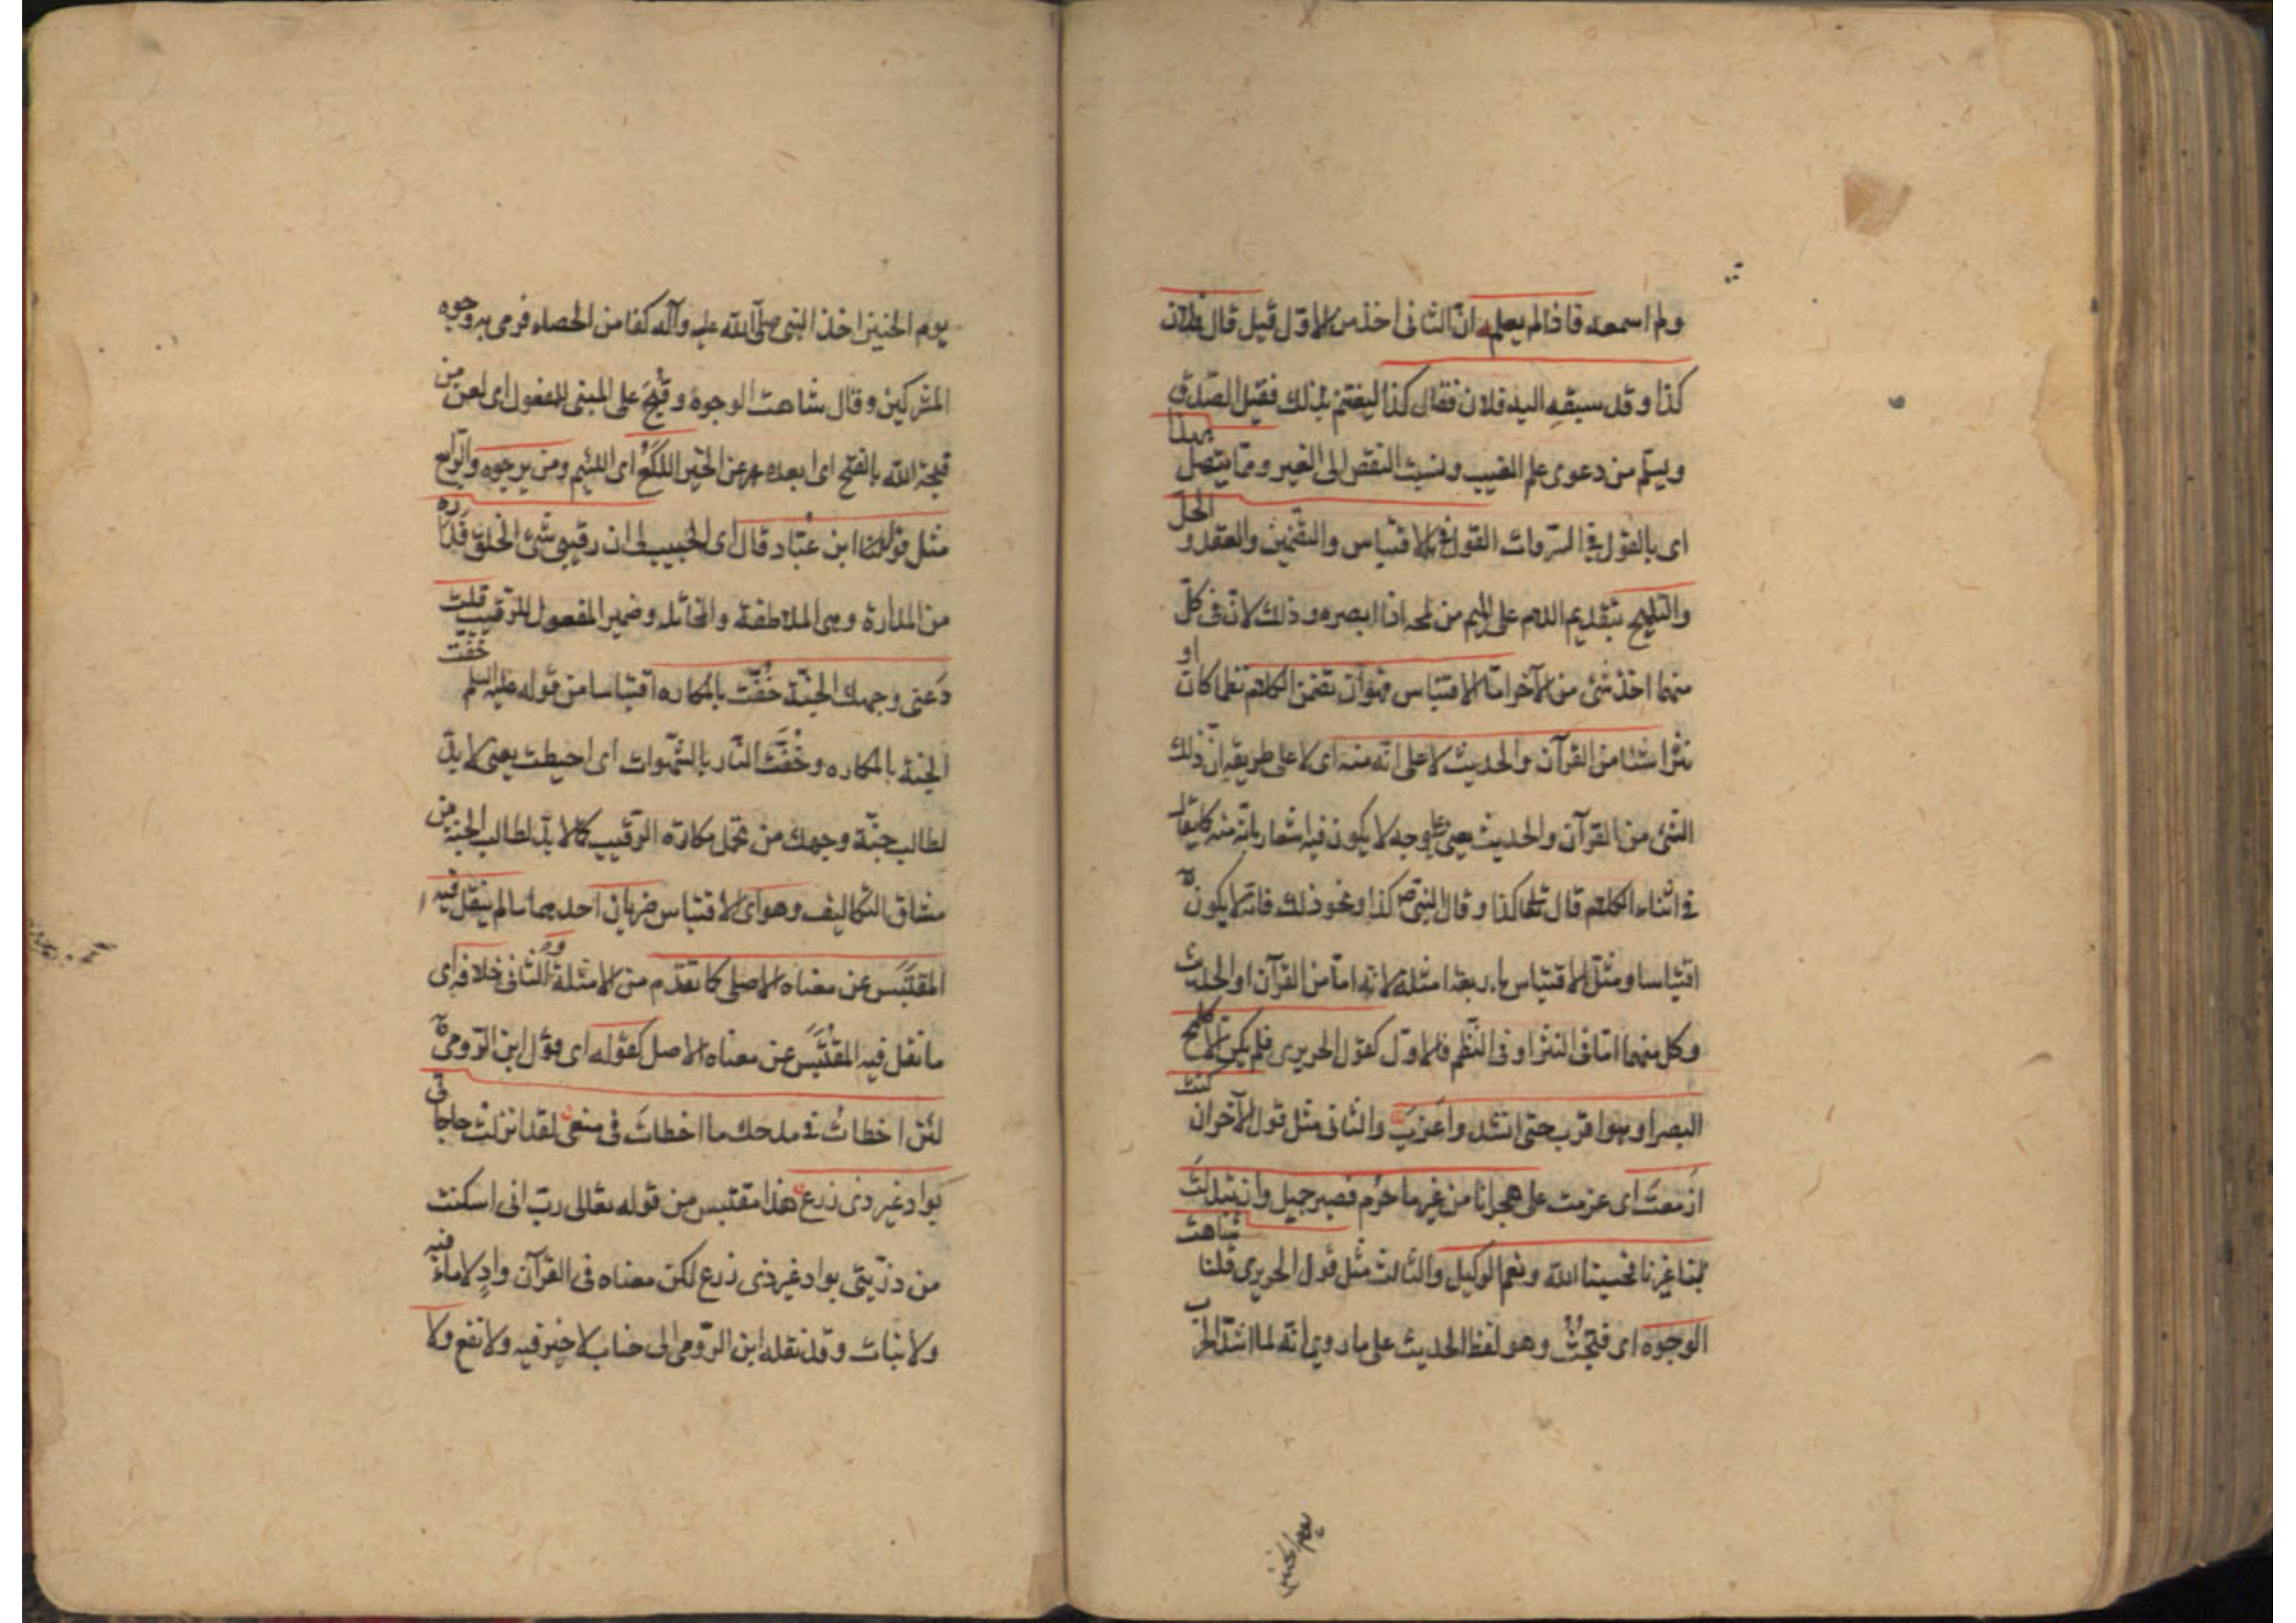 ولم اسمعه فاذا لم يعلم ان الثانى اخذ من الاوّل قيل قال فلان
كذا وقد سبقه اليه فلان فقال كذا ليغتنم بذلك فضيلة الصّدق
ويسلم من دعوى علم الغيب ونسبة النقص الى الغير وممّا يتصل بهذا
اى بالقول فى السّرقات القول فى الاقتباس والتضمين والعقد والحلّ
والتلميح بتقديم اللام على الميم من لمحه اذا ابصره وذلك لانّ فى كلّ
منهما اخذ شئ من الآخر امّا الاقتباس فهو ان تضمن الكلام نظما كان او
نثرا شئا من القرآن والحديث لا على انّه منه اى لا على طريقة انّ ذلك
الشئ من القرآن والحديث يعنى على وجه لا يكون فيه اشعار بانّه منه كما يقال
فى اثناء الكلام قال تعالى كذا وقال النبى ص كذا ونحو ذلك فانّه لا يكون
اقتباسا ومثّل للاقتباس باربعة امثلة لانّه امّا من القرآن او الحديث
وكل منهما امّا فى النثر او فى النّظم فالاوّل كقول الحريرى فلم يكن الّا كلمح
البصر او هو اقرب حتى انشد واغرب والثانى مثل قول الآخر ان كنت
ازمعت اى عزمت على هجرانا من غير ما جرم فصبر جميل وان تبدلت
بنا غيرنا فحسبنا الله ونعم الوكيل والثالث مثل قول الحريرى قلنا شاهت
الوجوه اى قبحت وهو لفظ الحديث على ما روي انّه لما اشتدّ الحرب
يوم الحنين
يوم الحنين اخذ النبى صلّى الله عليه وآله كفا من الحصاء فرمى به وجوه
المشركين وقال شاهت الوجوه وقبح على المبنى للمفعول اى لعن من
قبحه الله بالفتح اى ابعده عن الخير اللكع اى اللئيم ومن يرجوه والرّابع
مثل قول ابن عبّاد قال اى الحبيب لى ان رقيبى سئ الخلق فداره
من المداراة وهى الملاطفة والمخاتله وضمير المفعول للرّقيب قلت
دعنى وجهك الجنّة حفّت بالمكاره اقتباسا من قوله عليه السلم حفّت
الجنة بالمكاره وحفّت النّار بالشّهوات اى احيطت يعنى لا بدّ
لطالب جنّة وجهك من تحمل مكاره الرّقيب كما لا بدّ لطالب الجنة من
مشاق التكاليف وهو اى الاقتباس ضربان احدهما ما لم ينقل فيه
المقتبس عن معناه الاصلى كما تقدّم من الامثلة والثانى خلافه اى
ما نقل فيه المقتبس عن معناه الاصلى كقوله اى قول ابن الرّومى
لئن اخطات فى مدحك ما اخطات فى منعى لقد انزلت حاجاتى
بواد غير ذى زرع هذا مقتبس من قوله تعالى ربّ انى اسكنت
من ذرّيتى بواد غير ذى زرع لكن معناه فى القرآن وادٍ لا ماء فيه
ولا نبات وقد نقله ابن الرّومى الى جناب لا خير فيه ولا نفع ولا